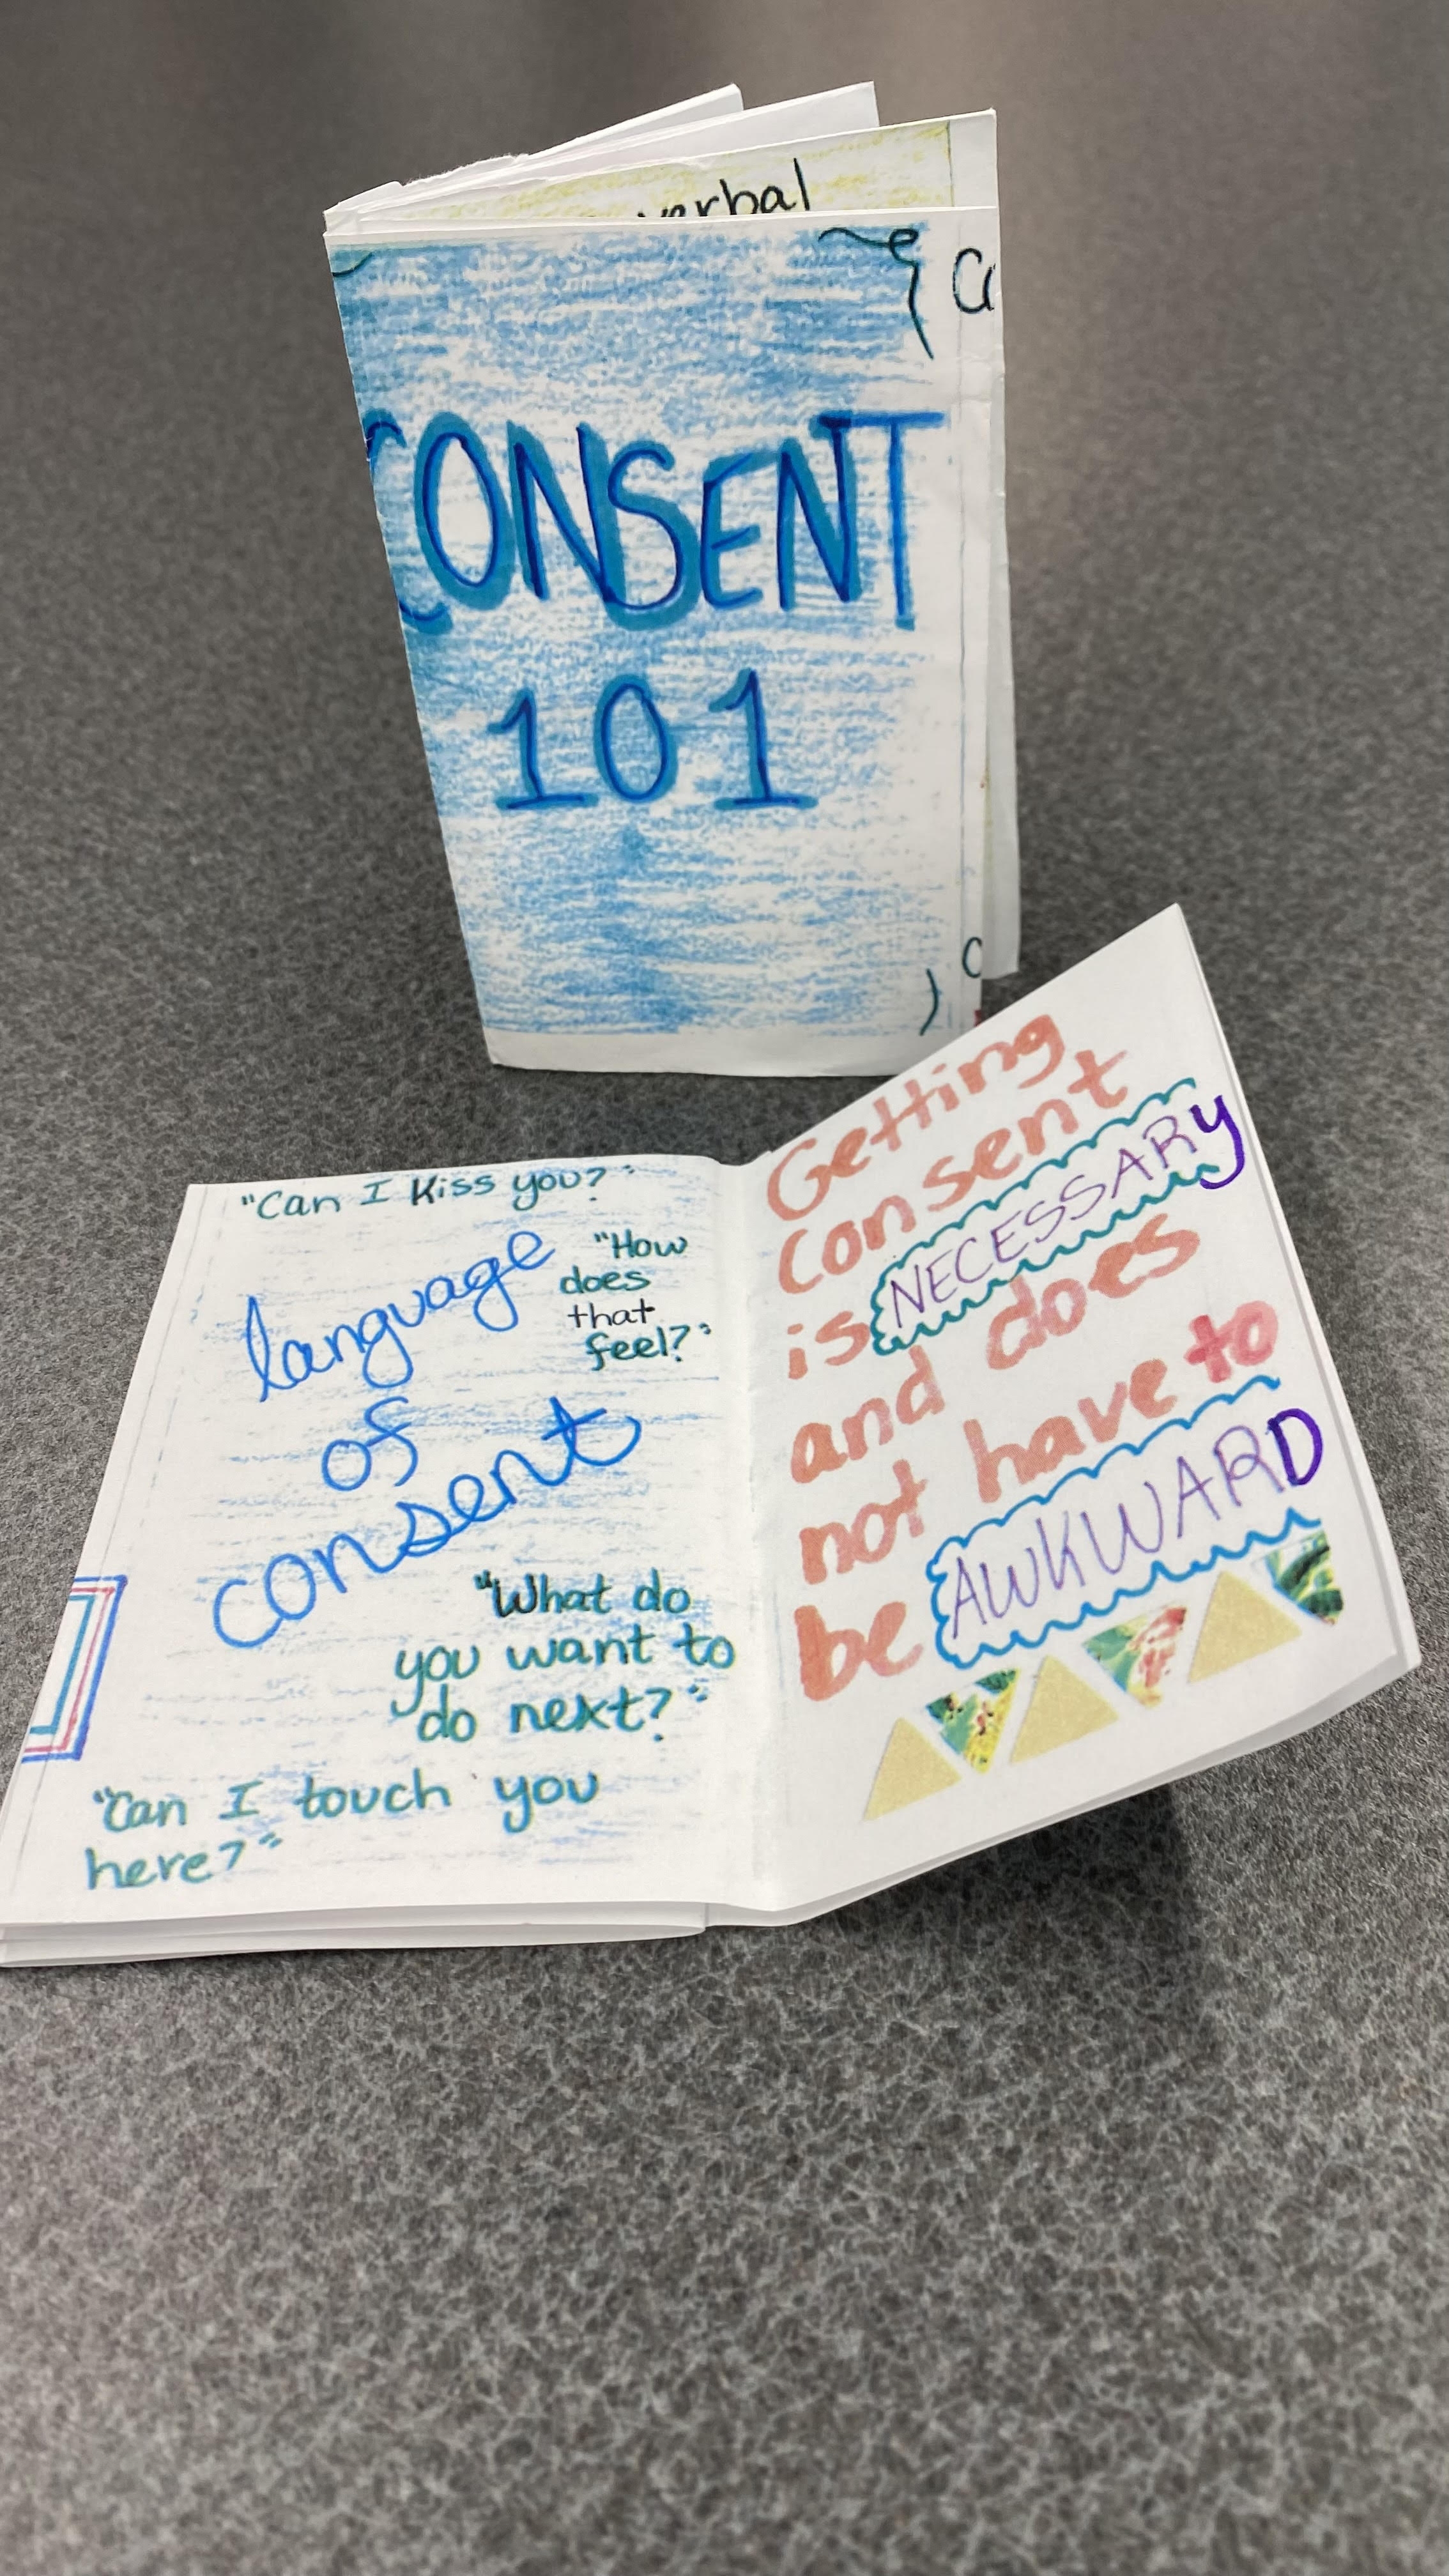 verbal
CONSENT
101
"Can I Kiss you?"
language
of
consent
"How
does
that
feel?"
"What do
you want to
do next?"
"Can I touch you
here?"
Getting
Consent
is NECESSARY
and does
not have to
be AWKWARD